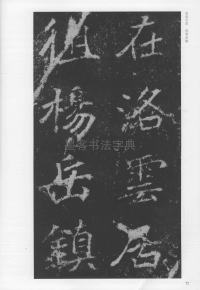 在洛雲居
楊岳鎮
书法字典